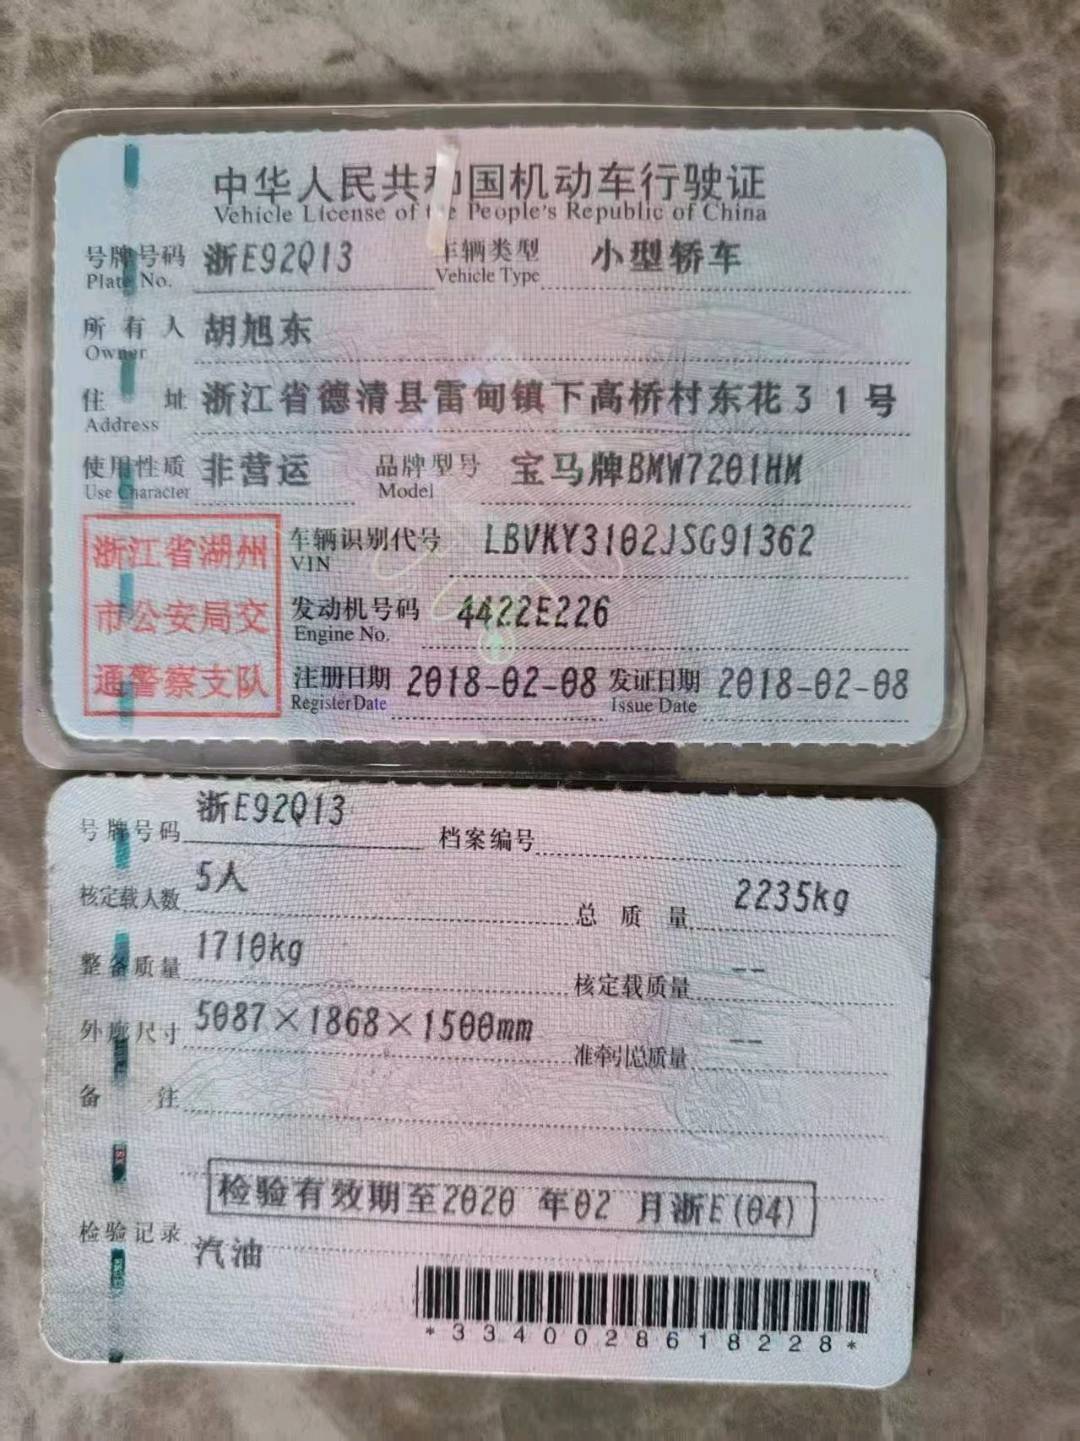 中华人民共和国机动车行驶证
Vehicle License of the People's Republic of China
号牌号码 浙E92Q13 车辆类型 小型轿车
Plate No. Vehicle Type
所有人 胡旭东
Owner
住址 浙江省德清县雷甸镇下高桥村东花31号
Address
使用性质 非营运 品牌型号 宝马牌BMW7201HM
Use Character Model
浙江省湖州
市公安局交
通警察支队
车辆识别代号 LBVKY3102JSG91362
VIN
发动机号码 4422E226
Engine No.
注册日期 2018-02-08 发证日期 2018-02-08
Register Date Issue Date
号牌号码 浙E92Q13 档案编号
核定载人数 5人 总质量 2235kg
整备质量 1710kg 核定载质量 --
外廓尺寸 5087×1868×1500mm 准牵引总质量 --
备注
检验有效期至2020 年02 月浙E(04)
检验记录
汽油
*3340028618228*